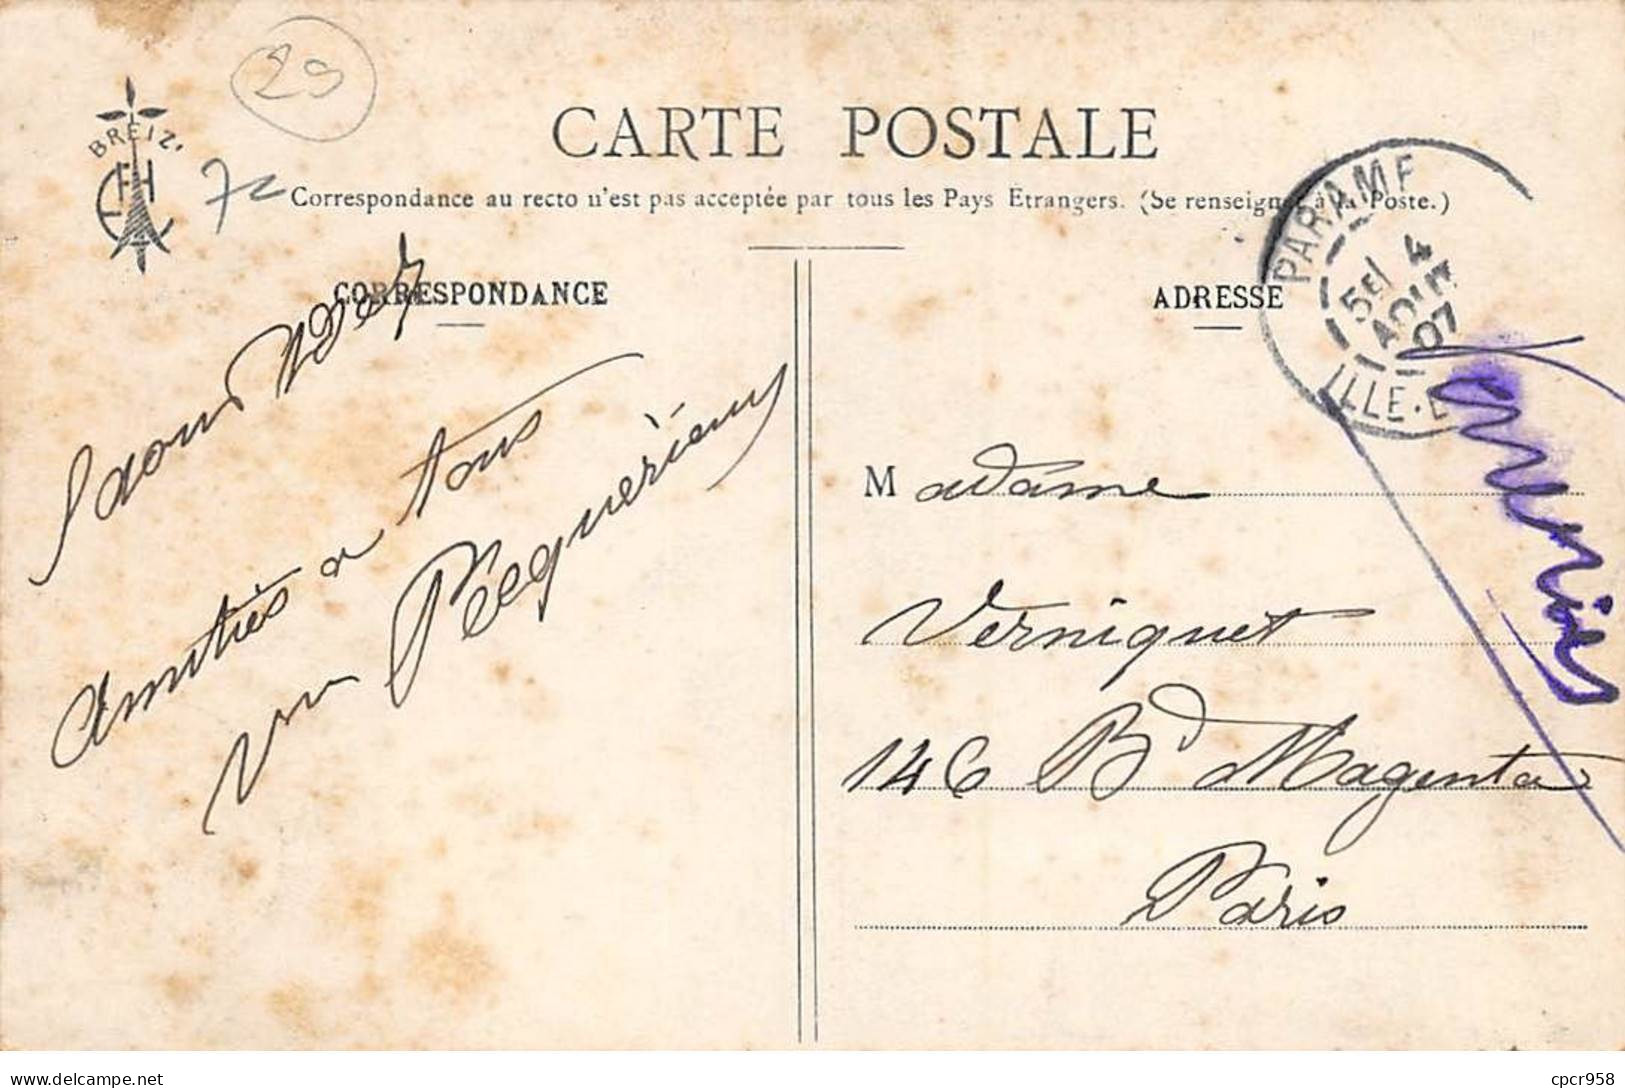 29
BREIZ
EH
72
CARTE POSTALE
Correspondance au recto n'est pas acceptée par tous les Pays Étrangers. (Se renseigner à la Poste.)
CORRESPONDANCE
Amitiés a tous
ADRESSE
PARAMÉ
5e/ 4
AOUT
07
ILLE-E
Madame
Verniquet
146 Bd Magenta
Paris
delcampe.net
cpcr958